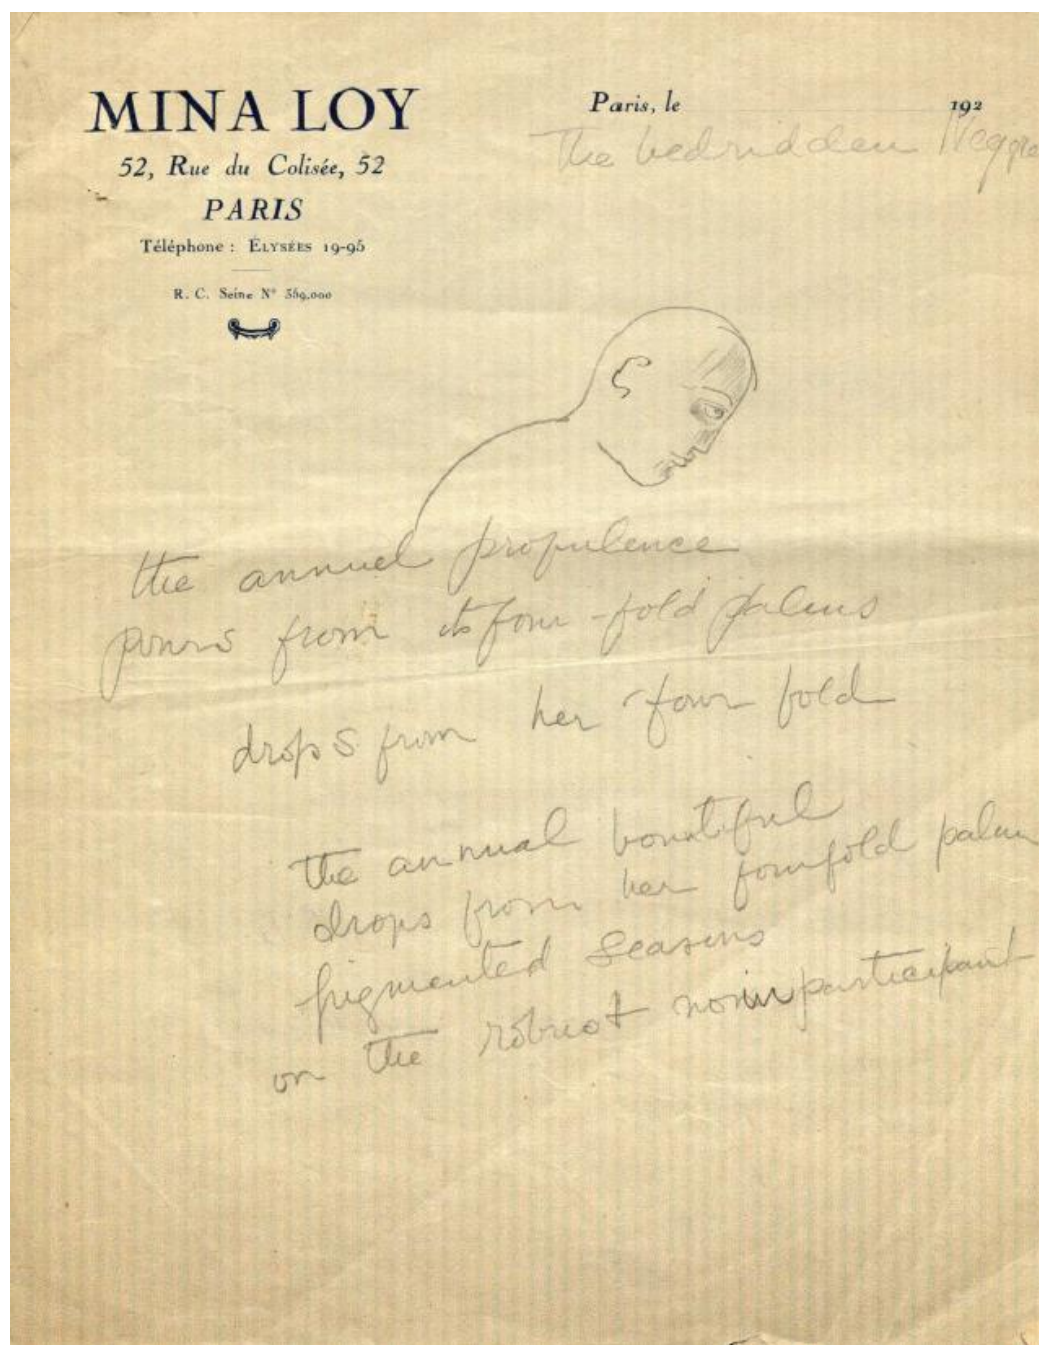 MINA LOY
52, Rue du Colisée, 52
PARIS
Téléphone : ÉLYSÉES 19-95
R. C. Seine N° 559.000
Paris, le 192
The bedridden
the annuel propulence
pours from its four-fold palms
drops from her four fold
the annual bountiful
drops from her fourfold palm
pigmented seasons
on the robust participant